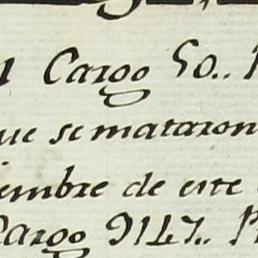 Cargo 50..
que se mataron
iembre de este
Cargo 9147..